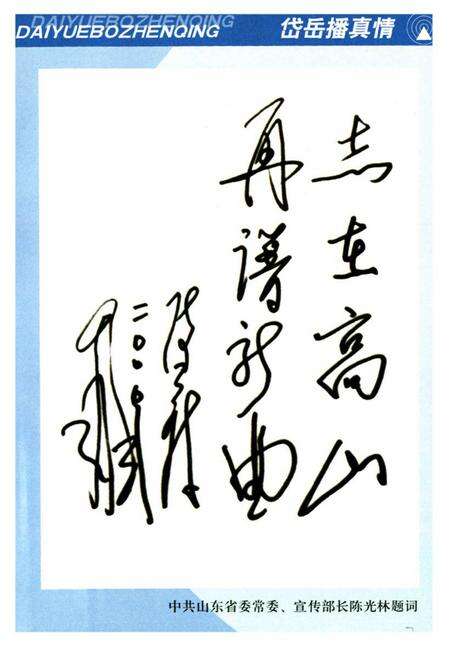 DAIYUEBOZHENQING
DAIYUEBOZHENQING
岱岳播真情
志在高山
再谱新曲
陈光林
中共山东省委常委、宣传部长陈光林题词